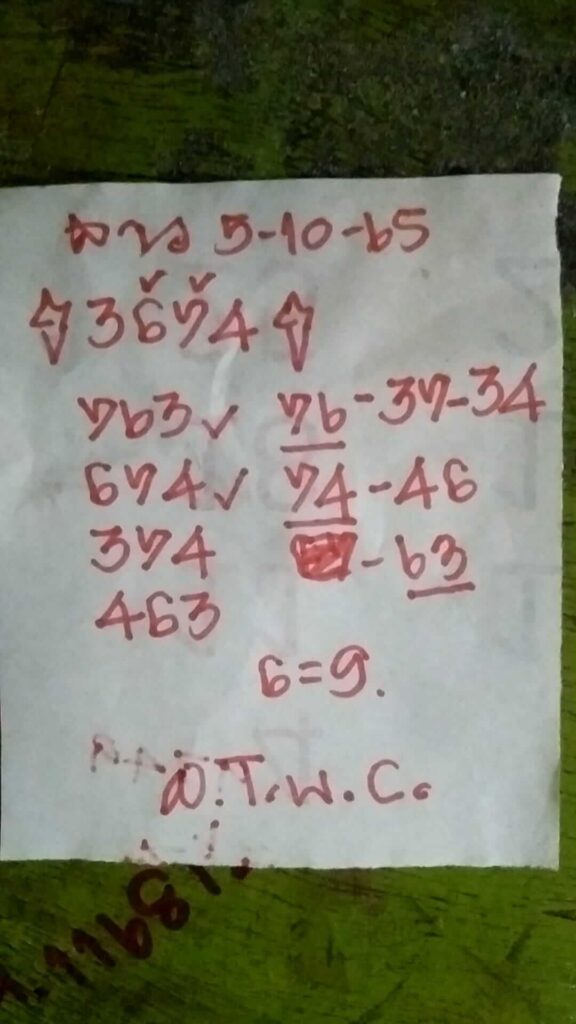 ลาว 5-10-65
3674
763✓ 76-37-34
674✓ 74-46
374 -63
463
6=9.
อ.T.พ.C.